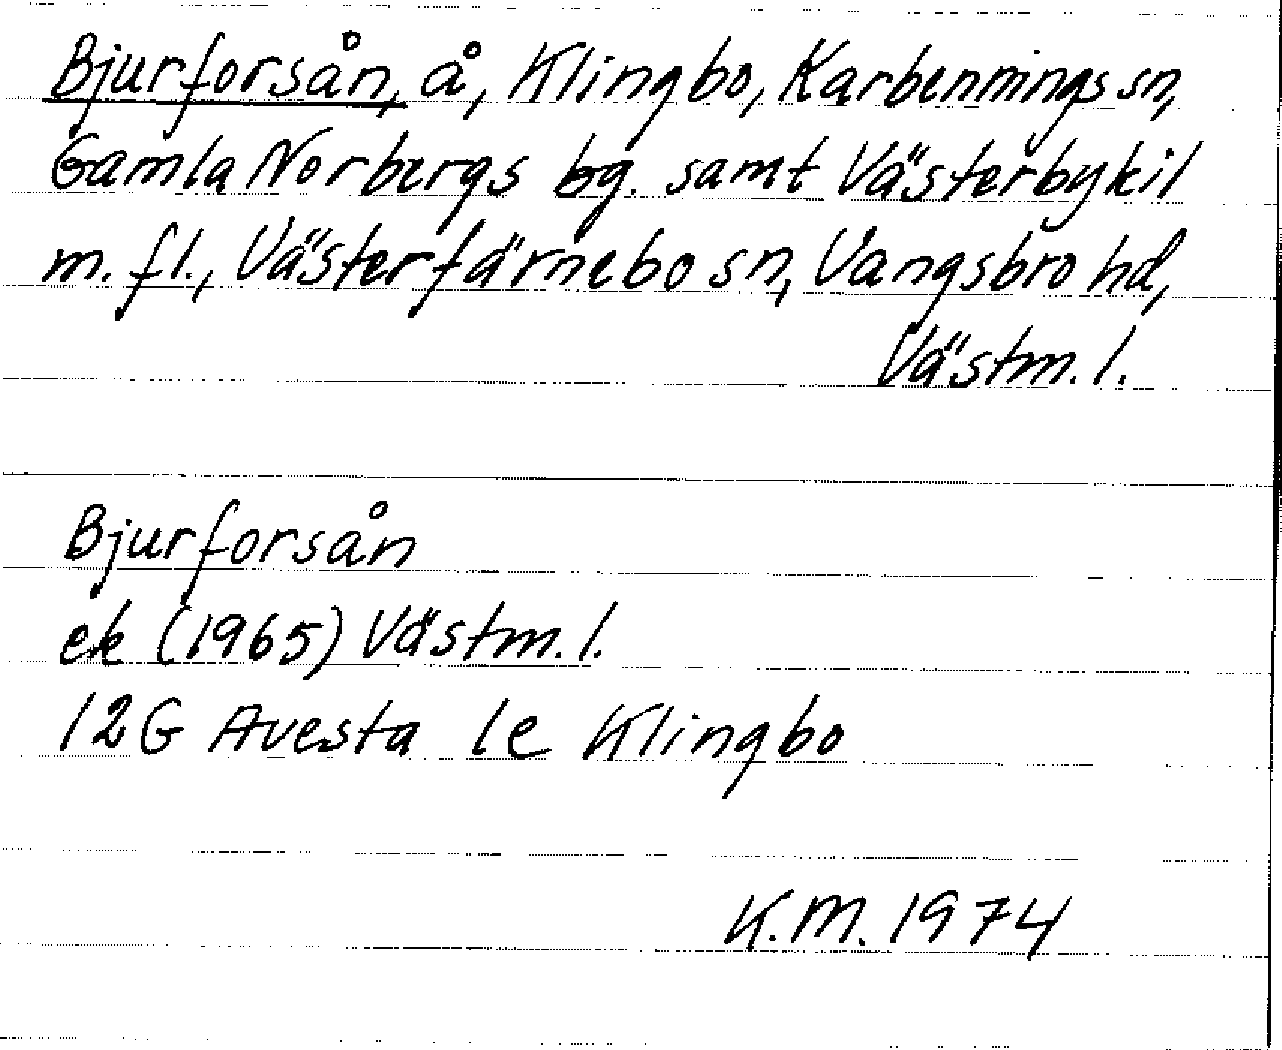 Bjurforsån, å, Klingbo, Karbennings sn,
Gamla Norbergs bg. samt Västerbykil
m. fl., Västerfärnebo sn, Vangsbro hd,
Västm. l.
Bjurforsån
ek (1965) Västm. l.
12G Avesta 1e Klingbo
K.M. 1974